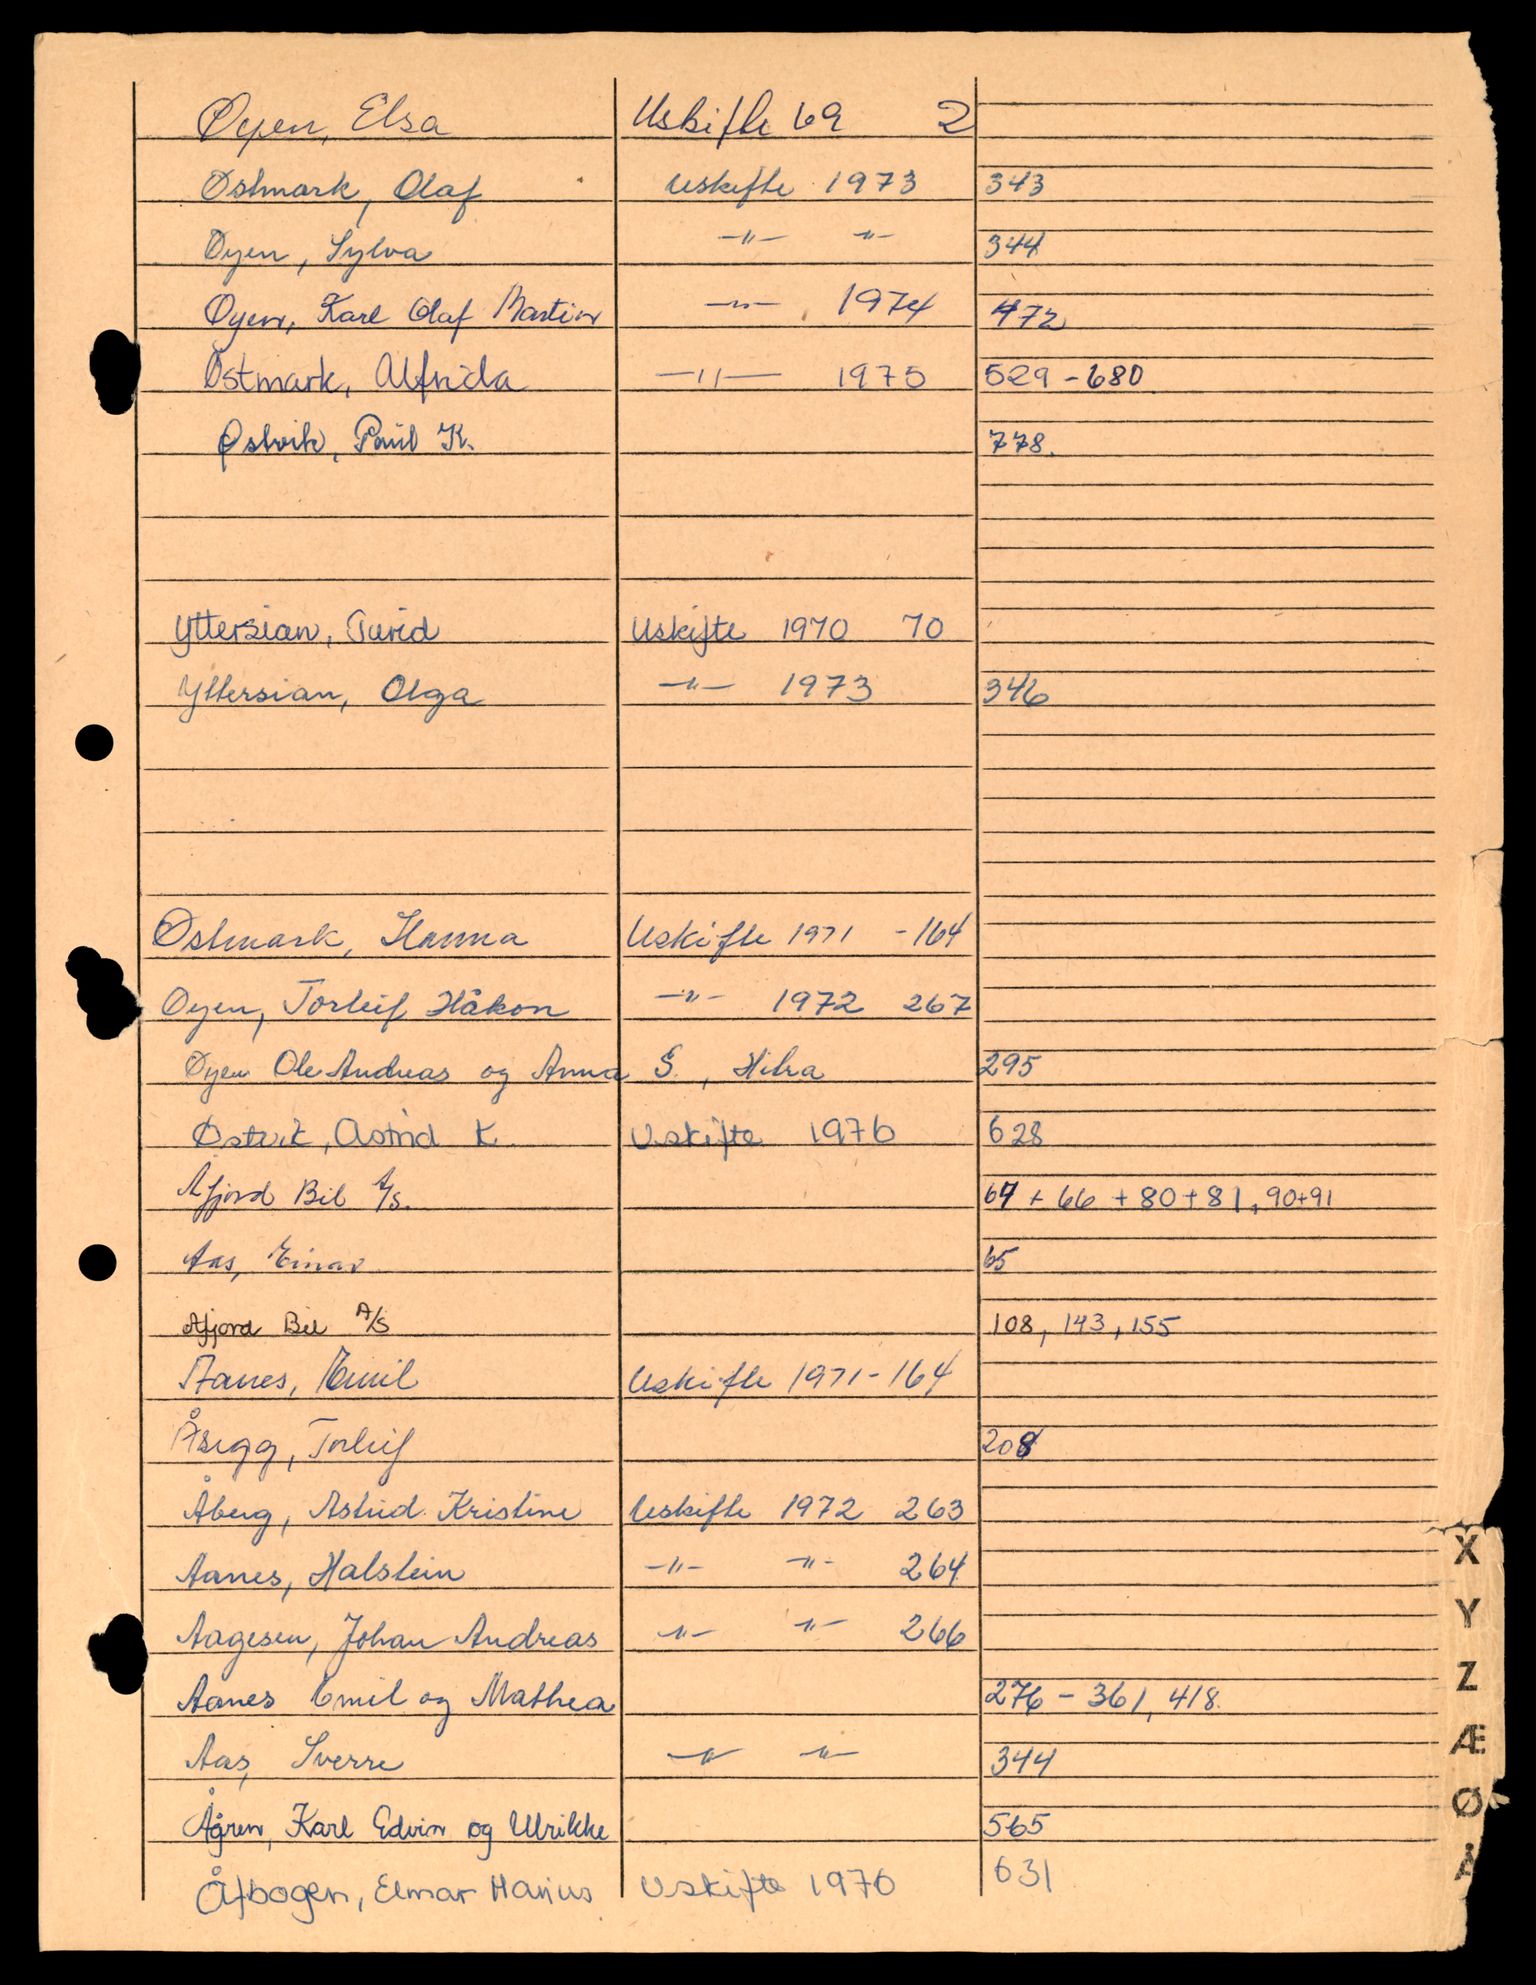 Øyen, Elsa Uskifte 69 2
Østmark, Olaf Uskifte 1973 343
Øyen, Sylva —"— —"— 344
Øyen, Karl Olaf Martin —"— 1974 472
Østmark, Alfrida —"— 1975 529 - 680
Østvik, Paul K. 778.
Yttersian, Turid Uskifte 1970 70
Yttersian, Olga —"— 1973 346
Østmark, Hanna Uskifte 1971 - 164
Øyen, Torleif Håkon —"— 1972 267
Øyen Ole Andreas og Anna S., Hitra 295
Østvik, Astrid K. Uskifte 1976 628
Åfjord Bil A/S. 67 + 66 + 80 + 81, 90+91
Aas, Einar 65
Åfjord Bil A/S 108, 143, 155
Aanes, Emil Uskifte 1971 - 164
Åsegg, Torleif 208
Åberg, Astrid Kristine Uskifte 1972 263
Aanes, Halstein —"— —"— 264
Aagesen, Johan Andreas —"— —"— 266
Aanes Emil og Mathea 276 - 361, 418.
Aas, Sverre —"— —"— 344
Ågren, Karl Edvin og Ulrikke 565
Åfbogen, Elmar Marius Uskifte 1976 631
X
Y
Z
Æ
Ø
Å